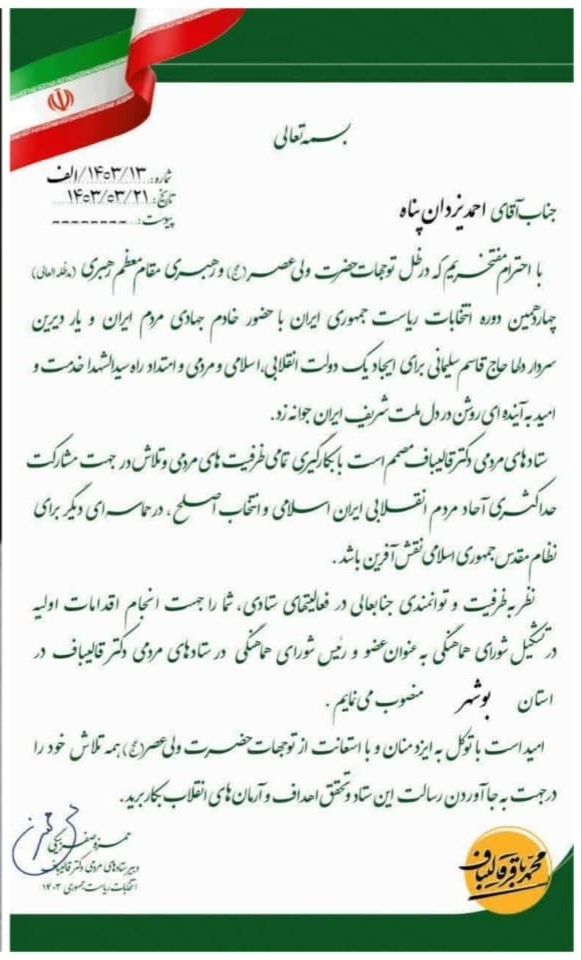 بسمه تعالی
شماره: ۱۴۰۳/۱۳/الف
تاریخ: ۱۴۰۳/۰۳/۲۱
پیوست: --------
جناب آقای احمد یزدان پناه
با احترام مفتخریم که در ظل توجهات حضرت ولی عصر (عج) و رهبری مقام معظم رهبری (مدظله العالی)
چهاردهمین دوره انتخابات ریاست جمهوری ایران با حضور خادم جهادی مردم ایران و یار دیرین
سردار دلها حاج قاسم سلیمانی برای ایجاد یک دولت انقلابی، اسلامی و مردمی و امتداد راه سیدالشهدا خدمت و
امید به آینده ای روشن در دل ملت شریف ایران جوانه زد.
ستادهای مردمی دکتر قالیباف مصمم است با بکارگیری تمامی ظرفیت های مردمی و تلاش در جهت مشارکت
حداکثری آحاد مردم انقلابی ایران اسلامی و انتخاب اصلح، در حماسه ای دیگر برای
نظام مقدس جمهوری اسلامی نقش آفرین باشد.
نظر به ظرفیت و توانمندی جنابعالی در فعالیتهای ستادی، شما را جهت انجام اقدامات اولیه
در تشکیل شورای هماهنگی به عنوان عضو و رئیس شورای هماهنگی در ستادهای مردمی دکتر قالیباف در
استان بوشهر منصوب می نمایم.
امید است با توکل به ایزد منان و با استعانت از توجهات حضرت ولی عصر (عج) همه تلاش خود را
در جهت به جا آوردن رسالت این ستاد و تحقق اهداف و آرمان های انقلاب بکار برید.
حمزه صفر بیگی
دبیر ستادهای مردمی دکتر قالیباف
انتخابات ریاست جمهوری ۱۴۰۳
محمدباقر قالیباف